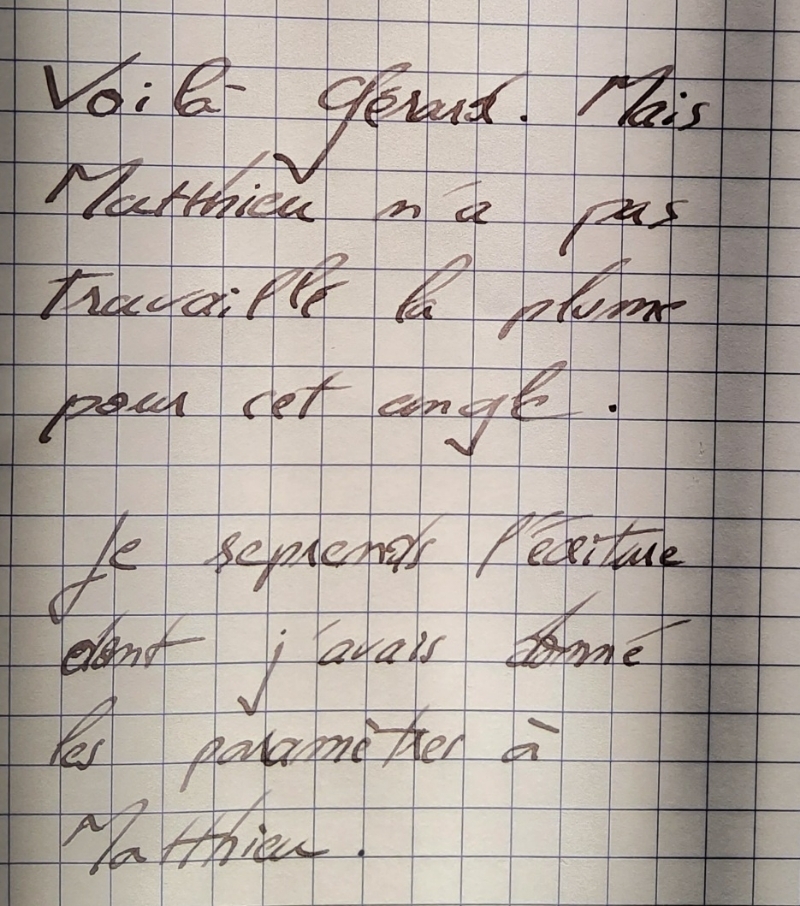 Voilà Gérard. Mais
Matthieu n'a pas
travaillé la plume
pour cet angle.
Je reprends l'écriture
dont j'avais donné
les paramètres à
Matthieu.